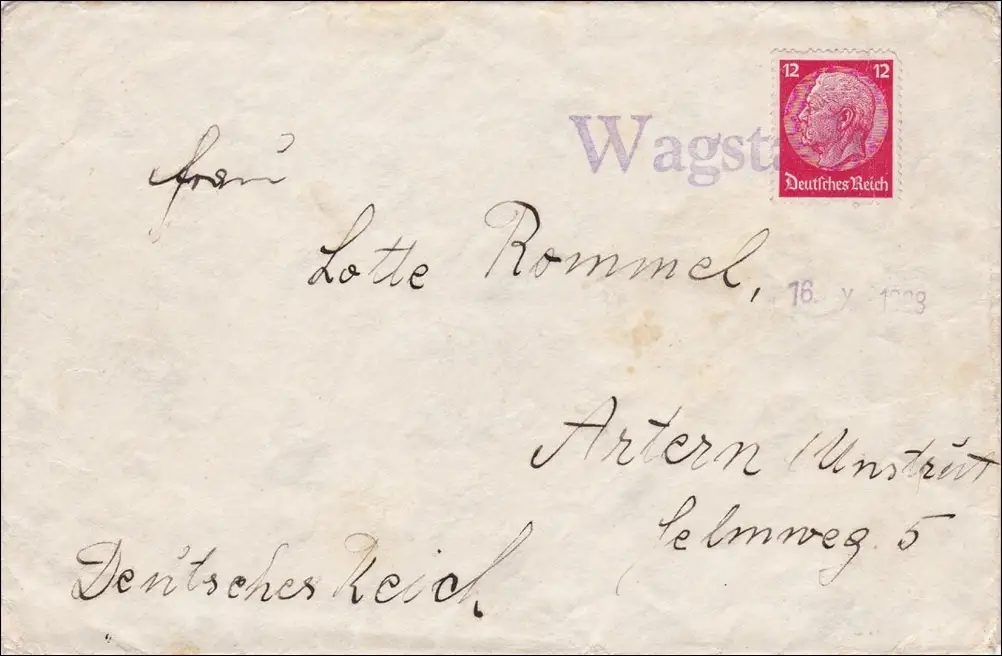 12 12
Deutsches Reich
Wagsta
Frau
Lotte Rommel,
16. X 1938
Artern /Unstrut
Selmweg 5
Deutsches Reich